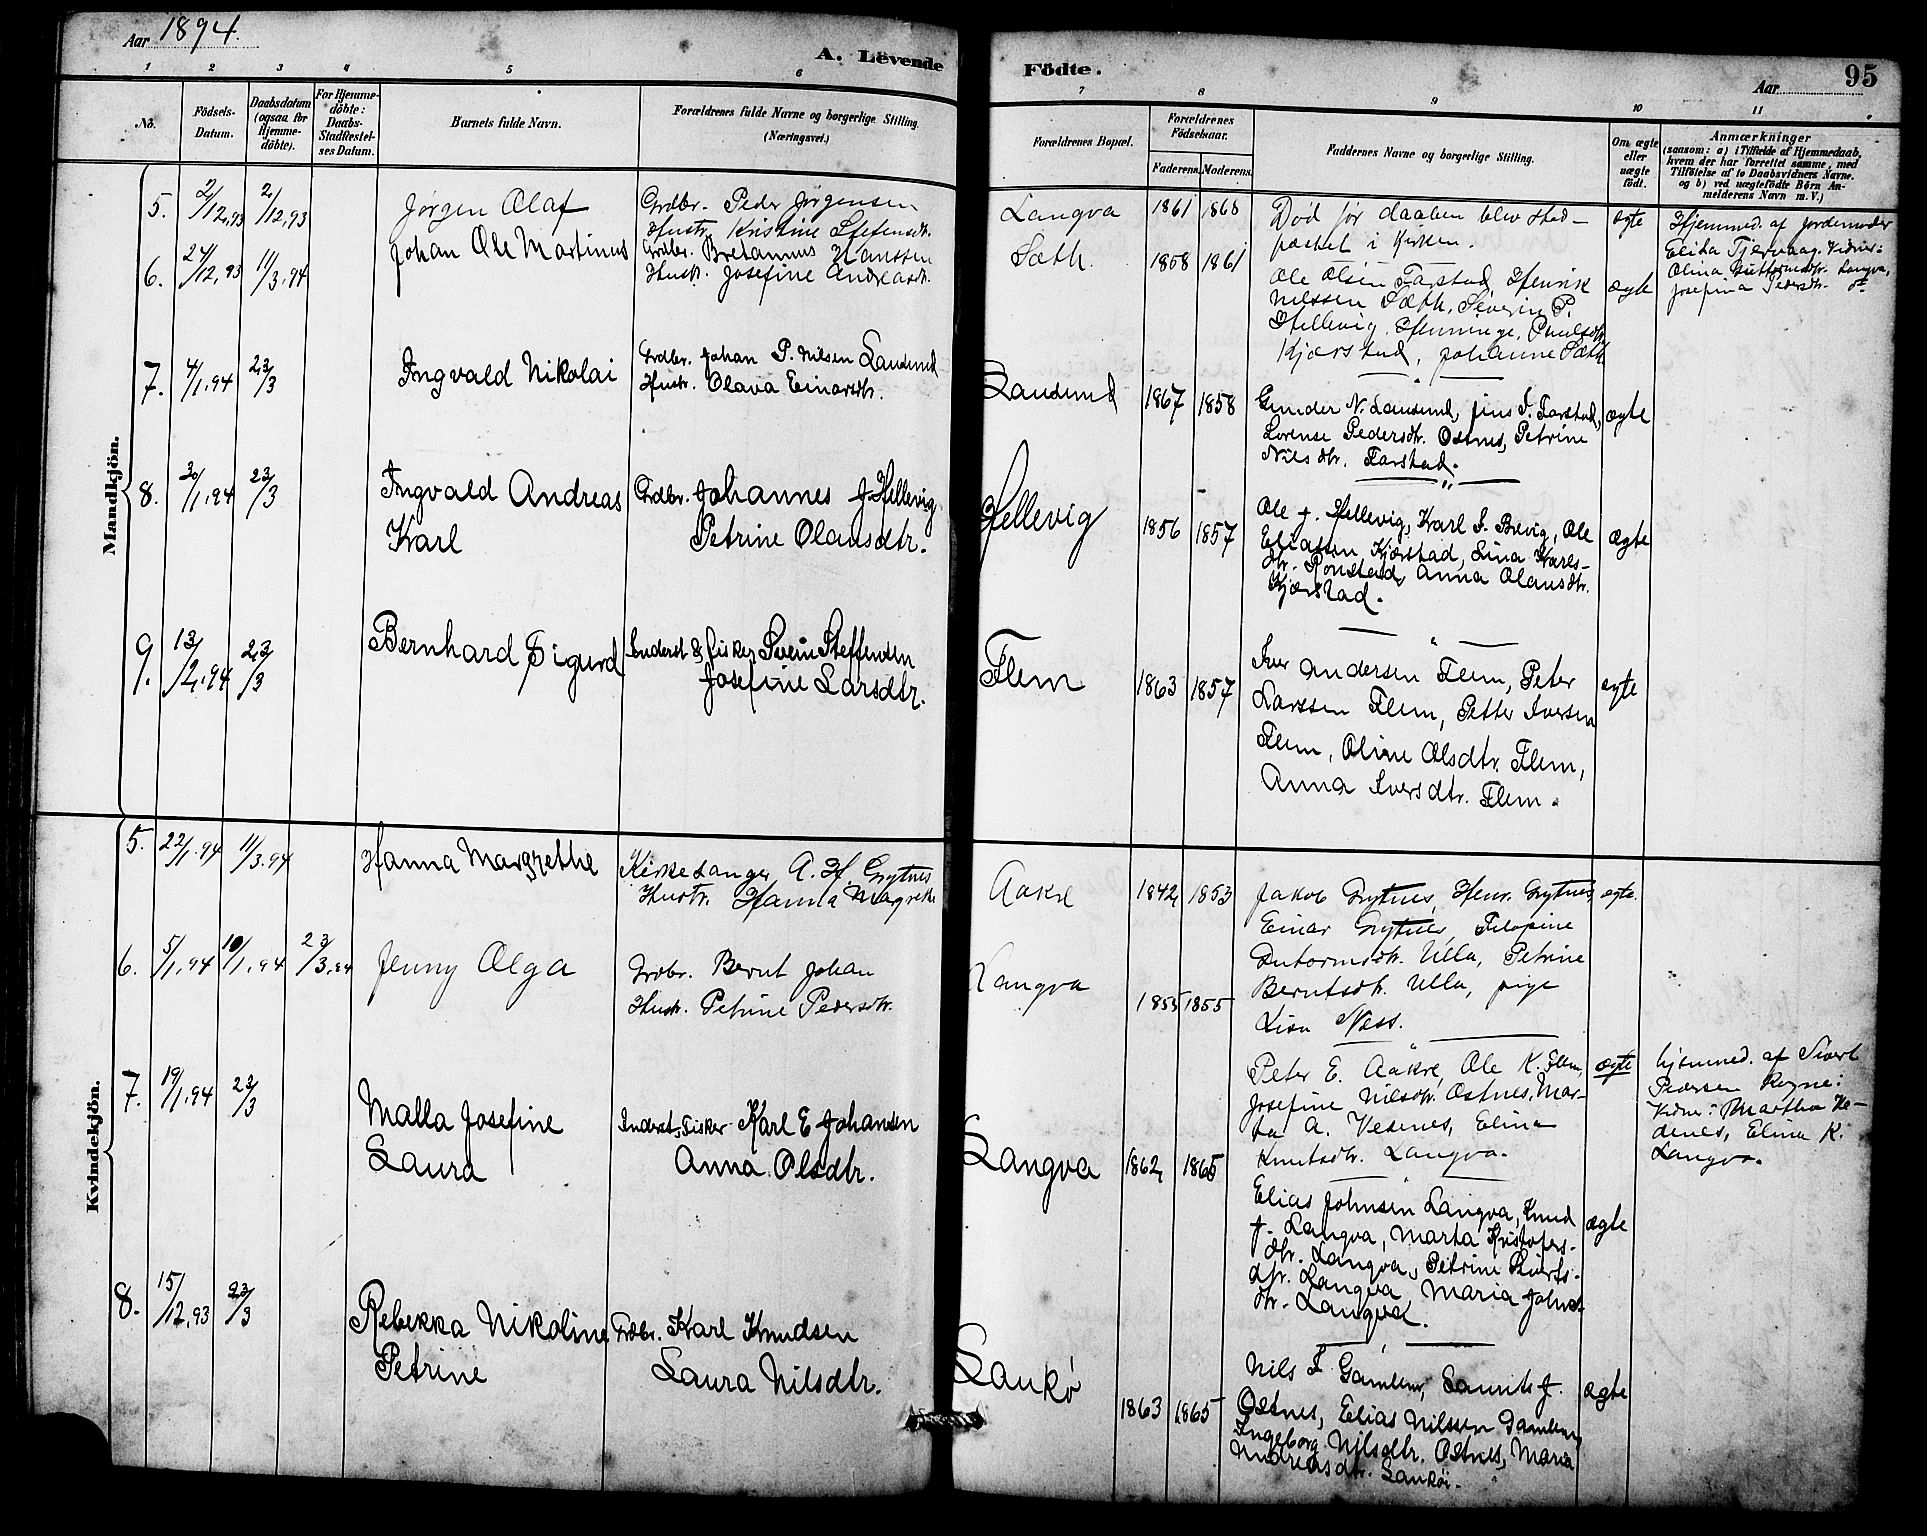 Aar 1894.
A. Levende
1 2 3 4 5 6
No.
Födsels-
Datum.
Daabsdatum
(ogsaa for
Hjemme-
döbte).
For Hjemme-
döbte:
Daabs-
Stadfæstel-
ses Datum.
Barnets fulde Navn.
Forældrenes fulde Navne og borgerlige Stilling.
(Næringsvei.)
Mandkjön.
5. 2/12,93 2/12,93 Jørgen Olaf Grdbr. Peder Jørgensen
Hustr. Kristine Steffensdtr.
6. 24/12,93 11/3,94 Johan Ole Martinus Grdbr. Bretanius Hanssen
Hustr. Josefine Andreasdtr.
7. 4/1,94 23/3 Ingvald Nikolai Grdbr. Johan P. Nilsen Lausund
Hustr. Olava Einarsdtr.
8. 30/1,94 23/3 Ingvald Andreas Grdbr. Johannes J. Hellevig
Karl Petrine Olausdtr.
9. 13/2,94 23/3 Bernhard Sigurd Inderst & Fisker Svein Steffensen
Josefine Larsdtr.
Kvindekjön.
5. 22/1,94 11/3,94 Hanna Margrethe Kirkesanger A. H. Grytnes
Hustr. Hanna Magrethe
6. 5/1,94 10/1,94 23/3,94 Jenny Olga Grdbr. Bernt Johan
Hustr. Petrine Pedersdtr.
7. 19/1,94 23/3 Malla Josefine Inderst, Fisker Karl E Johansen
Laura Anna Olsdtr.
8. 15/12,93 23/3 Rebekka Nikoline Grdbr. Karl Knudsen
Petrine Laura Nilsdtr.
Födte.
Aar
95
7 8 9 10 11
Forældrenes Bopæl.
Forældrenes
Födselsaar.
Faderens. Moderens.
Faddernes Navne og borgerlige Stilling.
Om ægte
eller
uægte
födt.
Anmærkninger
(saasom: a) i Tilfælde af Hjemmedaab,
hvem der har forrettet samme, med
Tilföielse af to Daabsvidners Navne.
og b) ved uægtefödte Börn An-
melderens Navn m. V.)
Langva 1861 1868 Død før daaben blev stad-
fæstet i Kirken.
ægte Hjemmed. af Jordemoder
Olina Guttormsdtr. Langva,
Josefina Pedersdtr. do
Sæth. 1858 1861 Ole Olsen Farstad, Henrik
Nilssen Sæth, Severine P.
Hellevig, Henninge Paulsdtr.
Kjærstad, Johanne Sæth
ægte
Lausund 1867 1858 Gunder N. Lausund, Jens I. Farstad,
Lorense Pedersdtr. Ostnes, Petrine
Nilsdtr. Farstad.
ægte
Hellevig 1856 1857 Ole J. Hellevig, Karl I. Brevig, Ole
Eliassen Kjærstad, Lina Karels-
dtr. Ronstad, Anna Olausdtr.
Kjærstad.
ægte
Flem 1863 1857 Iver Andersen Flem, Peter
Larssen Flem, Petter Iversen
Flem, Oline Olsdtr. Flem,
Anna Iversdtr. Flem.
ægte
Aakre 1842 1853 Jakob Grytnes, Henr. Grytnes,
Einar Grytnes, Filopine
Gutormsdtr. Ulla, Petrine
Berntsdtr. Ulla, pige
Lisa Næss.
ægte.
Langva 1855 1855 Peter E. Aakre, Ole K. Flem,
Josefine Nilsdtr. Ostnes, Mar-
ta A. Vesnes, Elina
Knutsdtr. Langva.
ægte hjemmed. af Sivert
Pedersen Røgne:
Vidne: Martha
Elina K.
Langva.
Langva 1862 1865 Elias Johnsen Langva, Knud
J. Langva, Marta Kristofers-
dtr. Langva, Petrine Siverts-
dtr. Langva, Maria Johns-
dtr. Langva.
ægte
Laukø 1863 1865 Nils I. Gamlem, Laurits J.
Ostnes, Elias Nilssen Gamlem,
Ingeborg Nilsdtr. Ostnes, Maria
Andreasdtr. Laukøi.
ægte